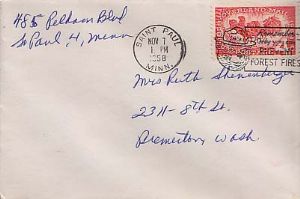 485 Pelham Blvd
St Paul 4, Minn
SAINT PAUL
NOV 7
1 PM
1958
MINN.
OVERLAND MAIL
Remember
Only you can
PREVENT
FOREST FIRES
Mrs Ruth
2311- 8th St.
Bremerton, Wash.